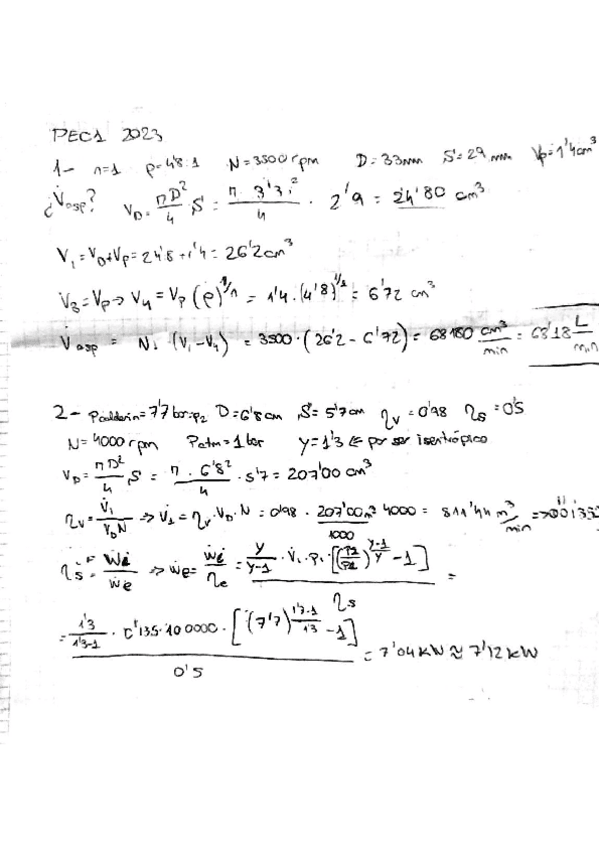 PEC1 2023
1- n=1 ρ=4'8:1 N=3500 rpm D=33mm S=29 mm Vp=1'4cm³
¿V̇asp? V_D = πD²/4 · S = π · 3'3²/4 · 2'9 = 24'80 cm³
V₁=V_D+Vp=24'8+1'4=26'2cm³
V₃=Vp→V₄=Vp(ρ)^1/n = 1'4·(4'8)^1/1 = 6'72 cm³
V̇asp = N·(V₁-V₄) = 3500·(26'2-6'72)=68180 cm³/min = 68'18 L/min
2- Pcalderín=7'7 bar=p₂ D=6'8cm S=5'7cm η_v=0'98 η_s=0'5
N=4000rpm Patm=1bar γ=1'3 ← por ser isentrópico
V_D = πD²/4 · S = π · 6'8²/4 · 5'7 = 207'00 cm³
η_v = V̇₁/(V_D N) ⇒ V̇₁ = η_v·V_D·N = 0'98 · 207'00/1000 · 4000 = 811'44 m³/min
η_s = Ẇi/Ẇe ⇒ Ẇe = Ẇi/η_e = γ/(γ-1) · V̇₁·p₁·[(p₂/p₁)^((γ-1)/γ) - 1] / η_s =
= 1'3/(1'3-1) · 0'135·100000·[(7'7)^((1'3-1)/1'3) - 1] / 0'5 = 7'04 KW ≈ 7'12 KW